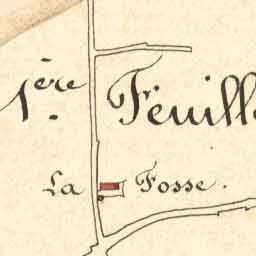 1.ère Feuill
La Fosse.